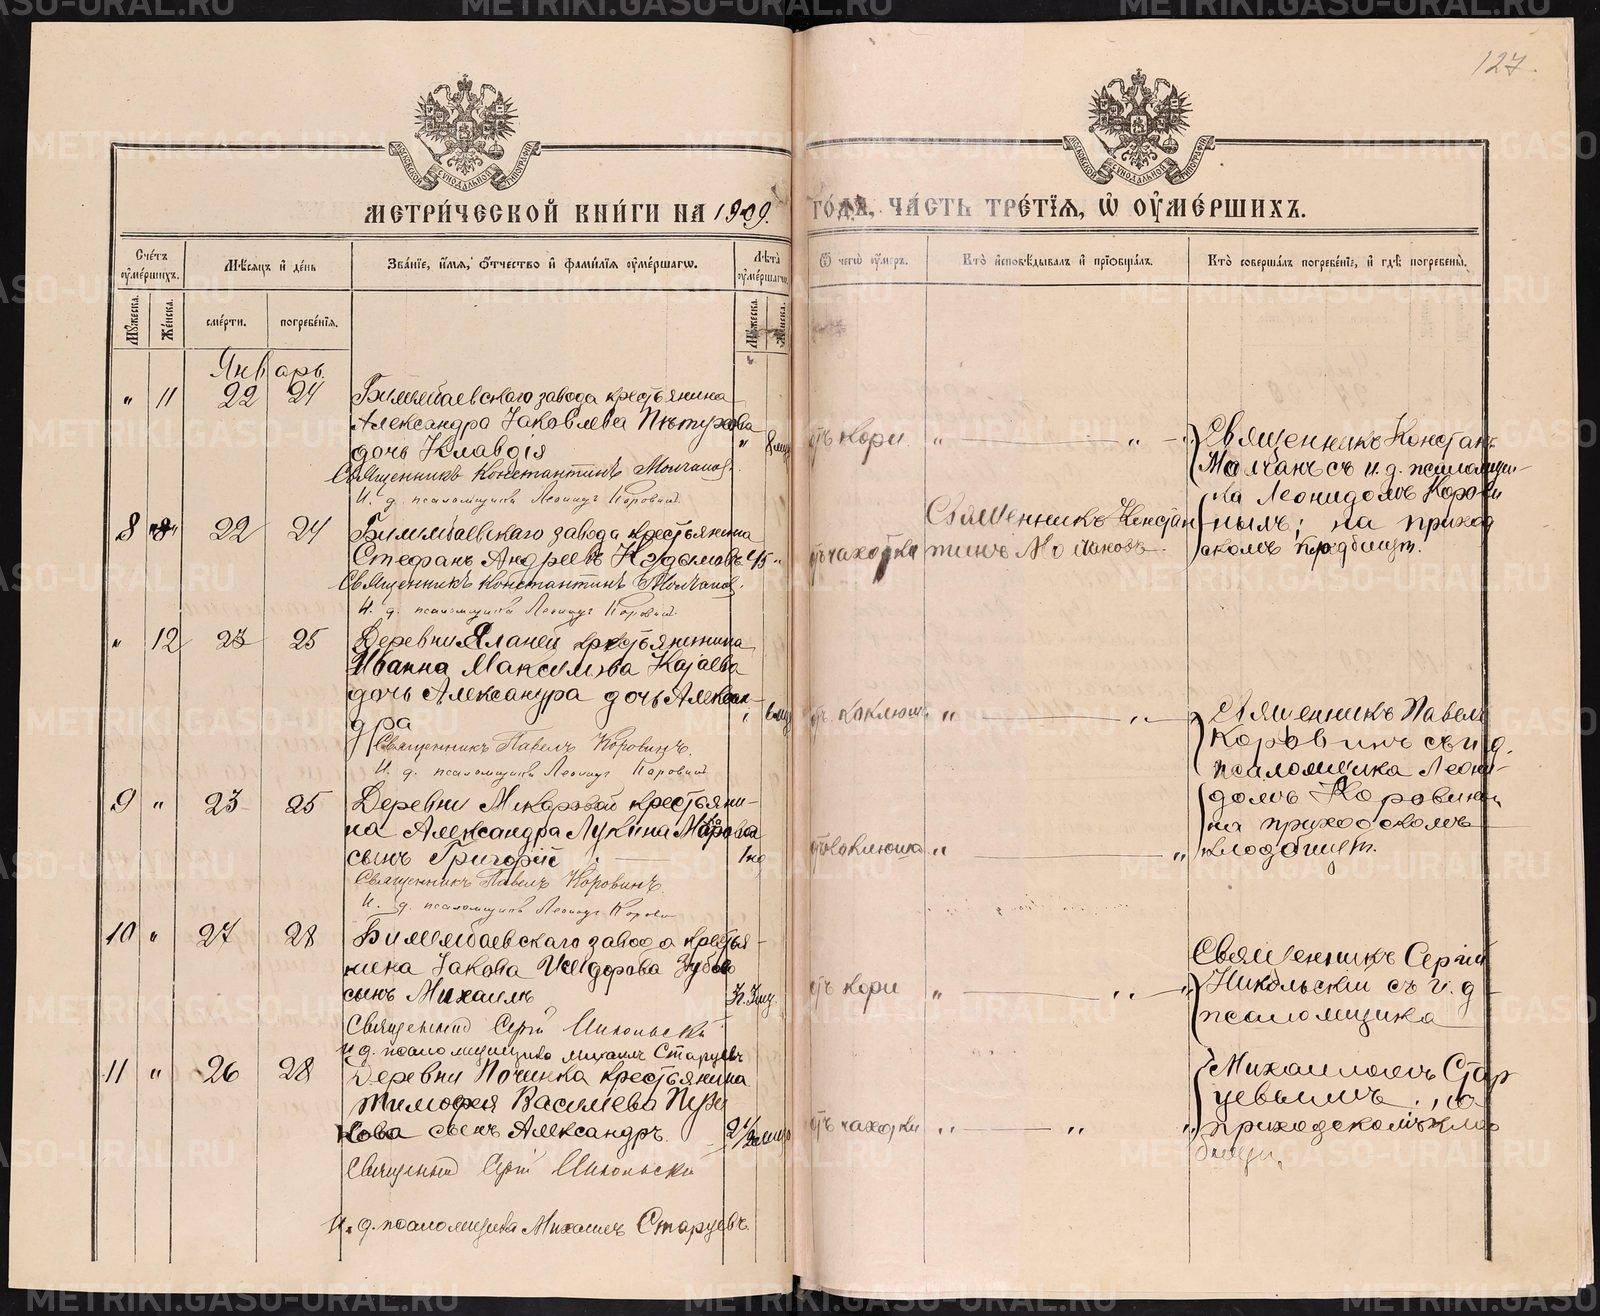 127.
МЕТРИ́ЧЕСКОЙ КНИ́ГИ НА 1909.
ГО́ДЪ, ЧА́СТЬ ТРЕ́ТЇѦ, Ѡ҆ ОУ҆МЕ́РШИХЪ.
Сче́тъ оу҆ме́ршихъ.
Мѣ́сѧцъ и҆ де́нь
Зва́нїе, и҆́мѧ, ѻ҆́тчество и҆ фами́лїѧ оу҆ме́ршагѡ.
Лѣ́та оу҆ме́ршагѡ.
Ѿ чегѡ̀ оу҆́меръ.
Кто̀ и҆сповѣ́дывалъ и҆ прїѡбща́лъ.
Кто̀ соверша́лъ погребе́нїе, и҆ гдѣ̀ погребены̀.
Мꙋ́жеска.
Же́нска.
сме́рти.
погребе́нїѧ.
Мꙋ́жеска.
Же́нска.
Январь.
" 11 22 24 Билимбаевскаго завода крестьянина
Александра Іаковлева Пѣтухова
дочь Клавдія " 8 мц
Священникъ Константинъ Молчановъ.
И. д. псаломщика Леонидъ Коровинъ
отъ кори. " "
Священникъ Констан
Молчанъ съ и. д. псаломщи-
ка Леонидомъ Корови
нымъ; на приход
скомъ кладбищѣ.
8 22 24 Билимбаевскаго завода крестьянина
Стефанъ Андреевъ 45 "
Священникъ Константинъ Молчановъ.
И. д. псаломщика Леонидъ Коровинъ.
чахотка
Священникъ Констан
тинъ Молчановъ.
" 12 23 25 Деревни Еланей крестьянина
Иванна Максимова
дочь Александра дочь Алексан-
дра " 6 мц
Священникъ Павелъ Коровинъ.
И. д. псаломщика Леонидъ Коровинъ
отъ коклюш. " "
Священникъ Павелъ
Коровинъ съ и д.
псаломщика Леони-
домъ Коровинъ
на приходскомъ
кладбищѣ.
9 " 23 25 Деревни Макаровой крестьяни-
на Александра Лукина
сынъ Григорій 1 нд
Священникъ Павелъ Коровинъ.
И. д. псаломщика Леонидъ Коровин
отъ коклюша " "
10 " 27 28 Билимбаевскаго завода крестья-
нина Іакова Исидорова Зубово
сынъ Михаилъ
Священник Сергій Никольскій
И д. псаломщика Михаилъ Старцевъ
отъ кори " " "
Священникъ Сергій
Никольскій съ и. д
псаломщика
Михаиломъ Стар
цевымъ, на
приходскомъ кла
бищѣ.
11 " 26 28 Деревни Починка крестьянина
Тимофея Васильева
сынъ Александръ.
Священник Сергій Никольски
И. д. псаломщика Михаилъ Старцевъ.
отъ чахотки " " "
METRIKI.GASO-URAL.RU